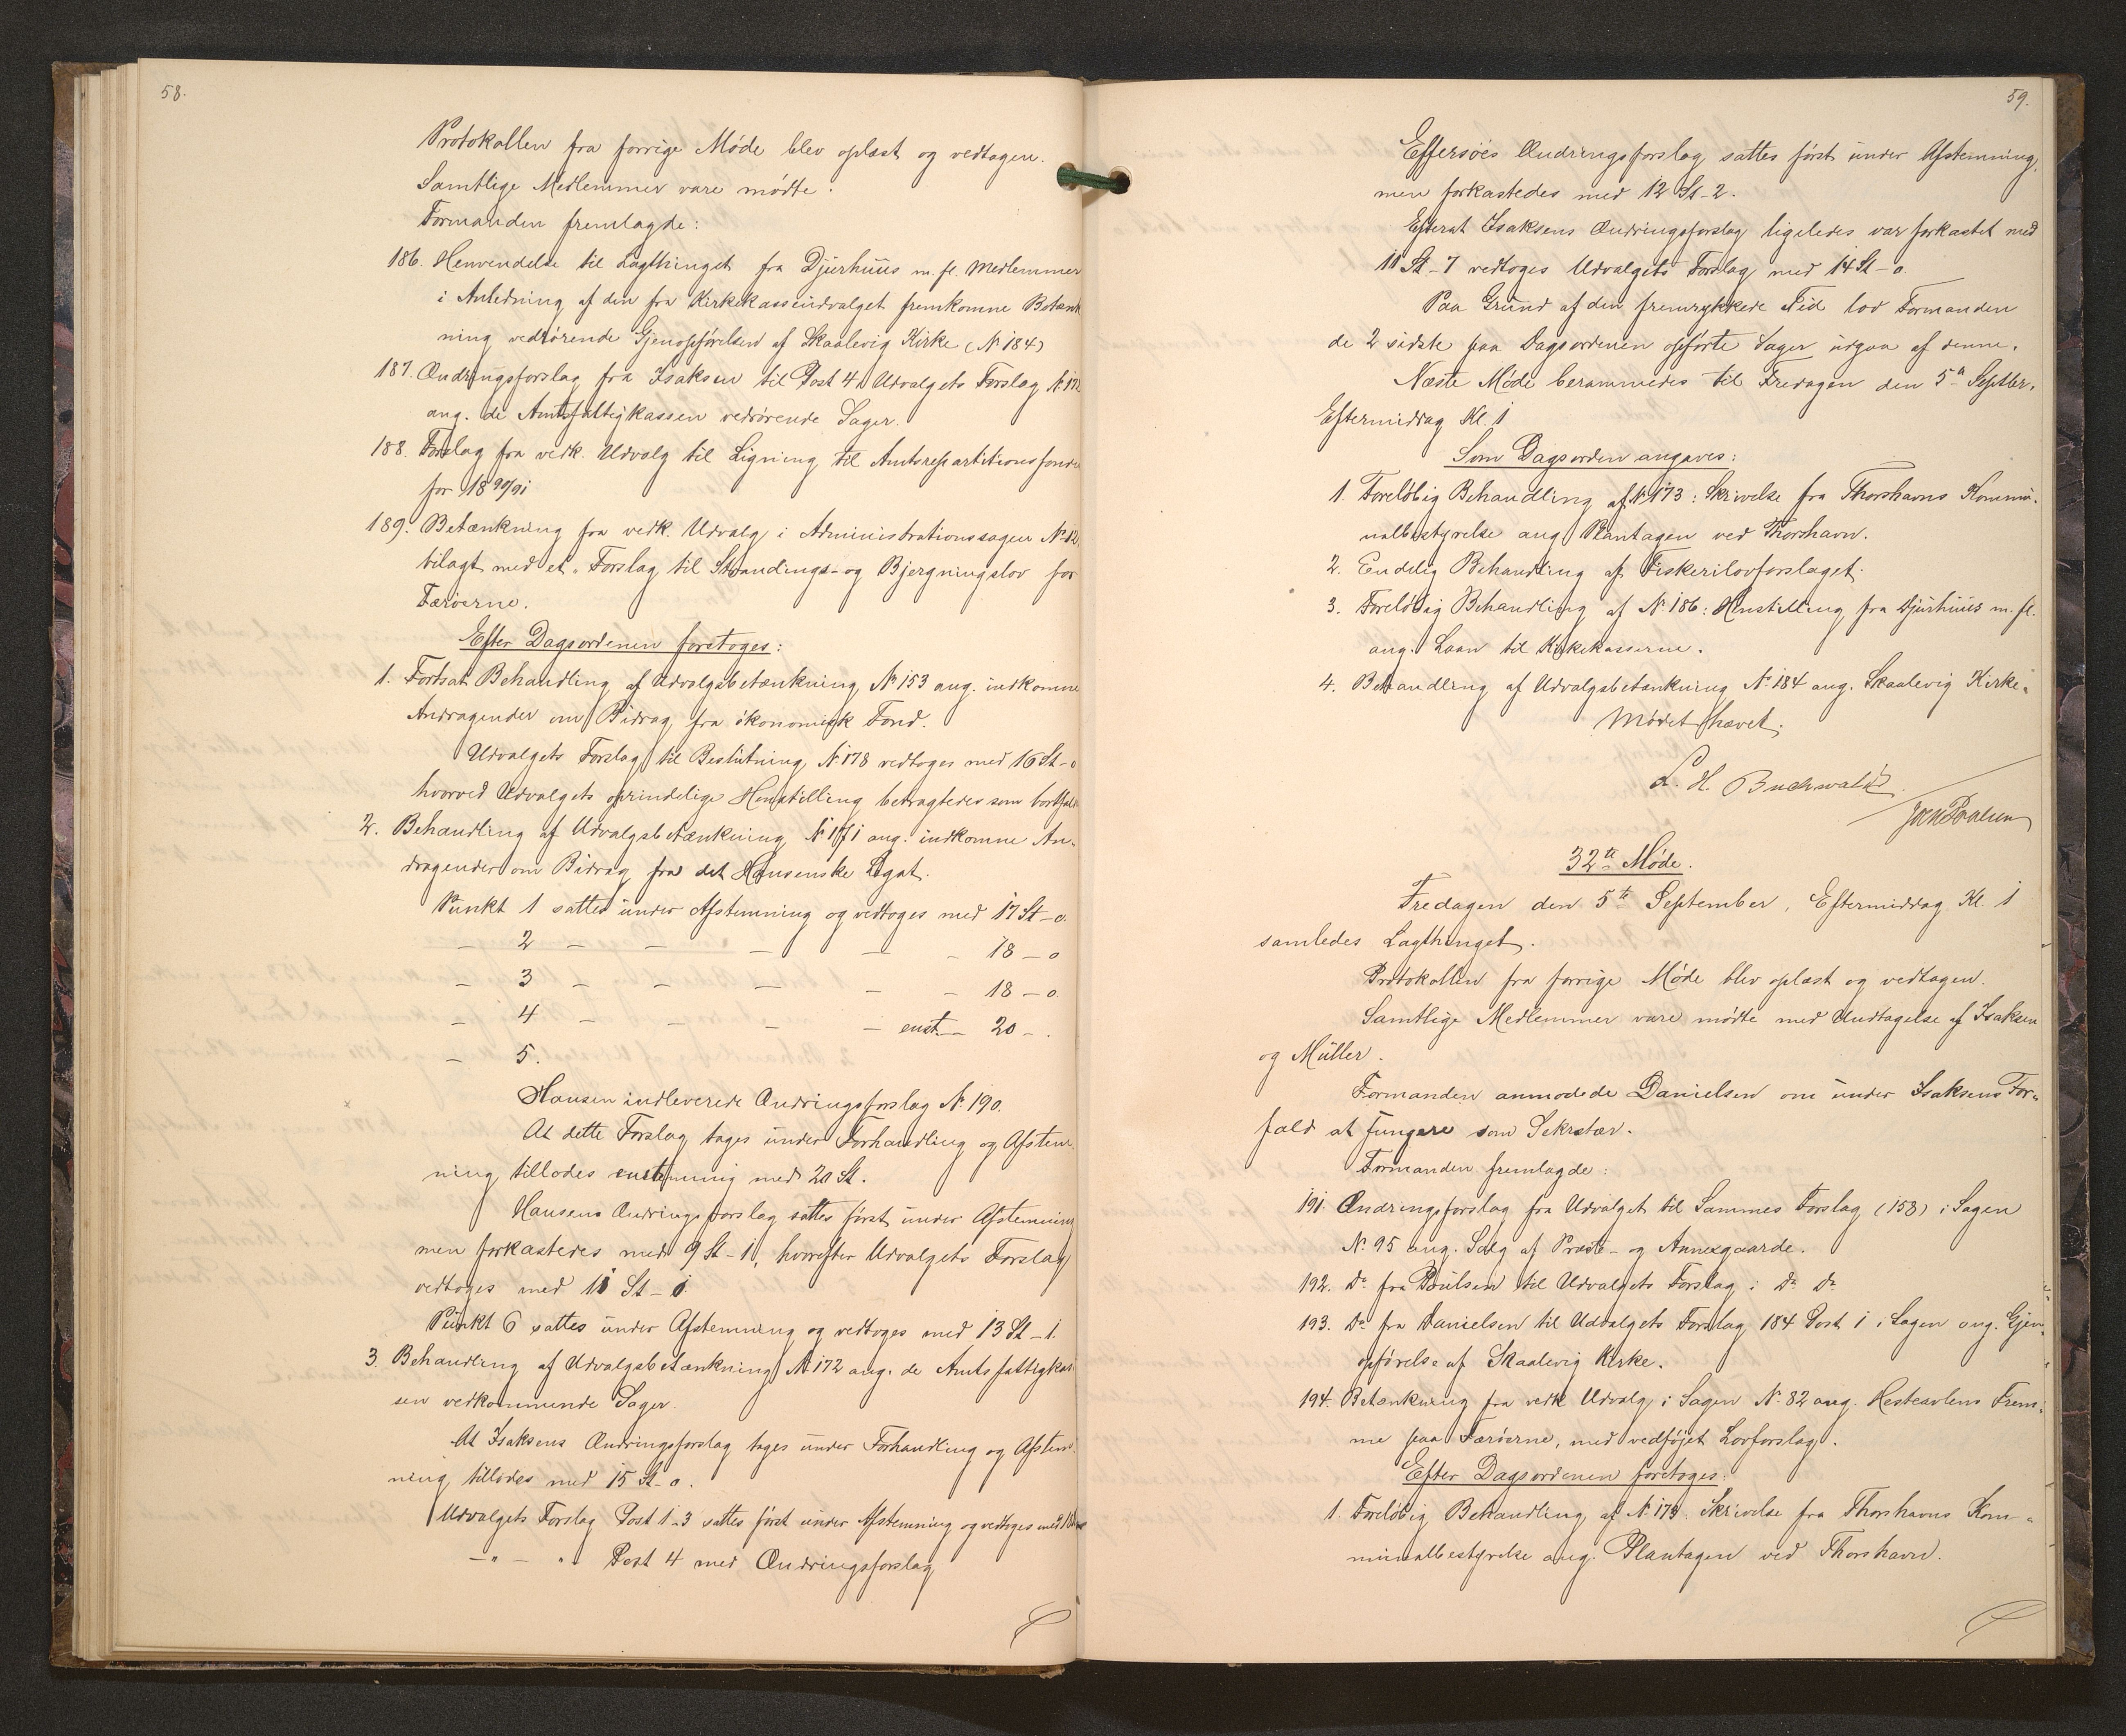 58.
Protokollen fra forrige Møde blev oplæst og vedtagen.
Samtlige Medlemmer vare mødte.
Formanden fremlagde:
186. Henvendelse til Lagthinget fra Djurhuus m. fl. Medlemmer
i Anledning af den fra Kirkekasseudvalget fremkomne Betænk
ning vedrørende Gjenopførelsen af Skaalevig Kirke (No 184)
187. Ændringsforslag fra Isaksen til Post 4 i Udvalgets Forslag No 172
ang. de Amtsfattigkassen vedrørende Sager.
188. Forslag fra vedk. Udvalg til Ligning til Amtsrepartitionsfonden
for 1890/91
189. Betænkning fra vedk. Udvalg i Administrationssagen No 12,
bilagt med et Forslag til Strandings- og Bjergningslov for
Færøerne.
Efter Dagsordenen foretoges:
1. Fortsat Behandling af Udvalgsbetænkning No 153 ang. indkomne
Andragender om Bidrag fra økonomisk Fond.
Udvalgets Forslag til Beslutning No 178 vedtoges med 16 St - 0
hvorved Udvalgets oprindelige Henstilling betragtedes som bortfald
2. Behandling af Udvalgsbetænkning No 171 ang. indkomne An-
dragender om Bidrag fra det Hansenske Legat.
Punkt 1 sattes under Afstemning og vedtoges med 17 St - 0.
- 2 - - - - - 18 - 0
- 3 - - - - - 18 - 0.
- 4 - - - - enst - 20 - .
- 5.
Hansen indleverede Ændringsforslag No 190.
At dette Forslag tages under Forhandling og Afstem-
ning tillodes enstemmig med 20 St.
Hansens Ændringsforslag sattes først under Afstemning
men forkastedes med 9 St - 1, hvorefter Udvalgets Forslag
vedtoges med 11 St - 0.
Punkt 6 sattes under Afstemning og vedtoges med 13 St - 1.
3. Behandling af Udvalgsbetænkning No 172 ang. de Amtsfattigkas
sen vedkommende Sager.
At Isaksens Ændringsforslag tages under Forhandling og Afstem-
ning tillodes med 15 St - 0.
Udvalgets Forslag Post 1-3 sattes først under Afstemning og vedtoges med
- " - " Post 4 med Ændringsforslag
59.
Effersøes Ændringsforslag sattes først under Afstemning,
men forkastedes med 12 St - 2.
Efterat Isaksens Ændringsforslag ligeledes var forkastet med
11 St - 7 vedtoges Udvalgets Forslag med 14 St - 0.
Paa Grund af den fremrykkede Tid lod Formanden
de 2 sidste paa Dagsordenen opførte Sager udgaa af denne.
Næste Møde berammedes til Fredagen den 5te Septbr.
Eftermiddag Kl. 1
Som Dagsorden angaves:
1. Foreløbig Behandling af No 173: Skrivelse fra Thorshavns Kommu-
nalbestyrelse ang Plantagen ved Thorshavn.
2. Endelig Behandling af Fiskerilovforslaget.
3. Foreløbig Behandling af No 186: Henstilling fra Djurhuus m. fl.
ang. Laan til Kirkekasserne.
4. Behandling af Udvalgsbetænkning No 184 ang. Skaalevig Kirke.
Mødet hævet.
L. H. Buchwaldt
32te Møde.
Fredagen den 5te September, Eftermiddag Kl. 1
samledes Lagthinget.
Protokollen fra forrige Møde blev oplæst og vedtagen.
Samtlige Medlemmer vare mødte med Undtagelse af Isaksen
og Müller.
Formanden anmodede Danielsen om under Isaksens For-
fald at fungere som Sekretær.
Formanden fremlagde:
191. Ændringsforslag fra Udvalget til Sammes Forslag (158) i Sagen
No 95 ang. Salg af Præste- og Annexgaarde.
192. Do fra Poulsen til Udvalgets Forslag i Do Do
193. Do fra Danielsen til Udvalgets Forslag 184 Post 1 i Sagen ang. Gjen-
opførelse af Skaalevig Kirke.
194. Betænkning fra vedk Udvalg i Sagen No 82 ang. Hesteavlens Frem-
me paa Færøerne, med vedføjet Lovforslag.
Efter Dagsordenen foretoges:
1. Foreløbig Behandling af No 173. Skrivelse fra Thorshavns Kom-
munalbestyrelse ang. Plantagen ved Thorshavn.